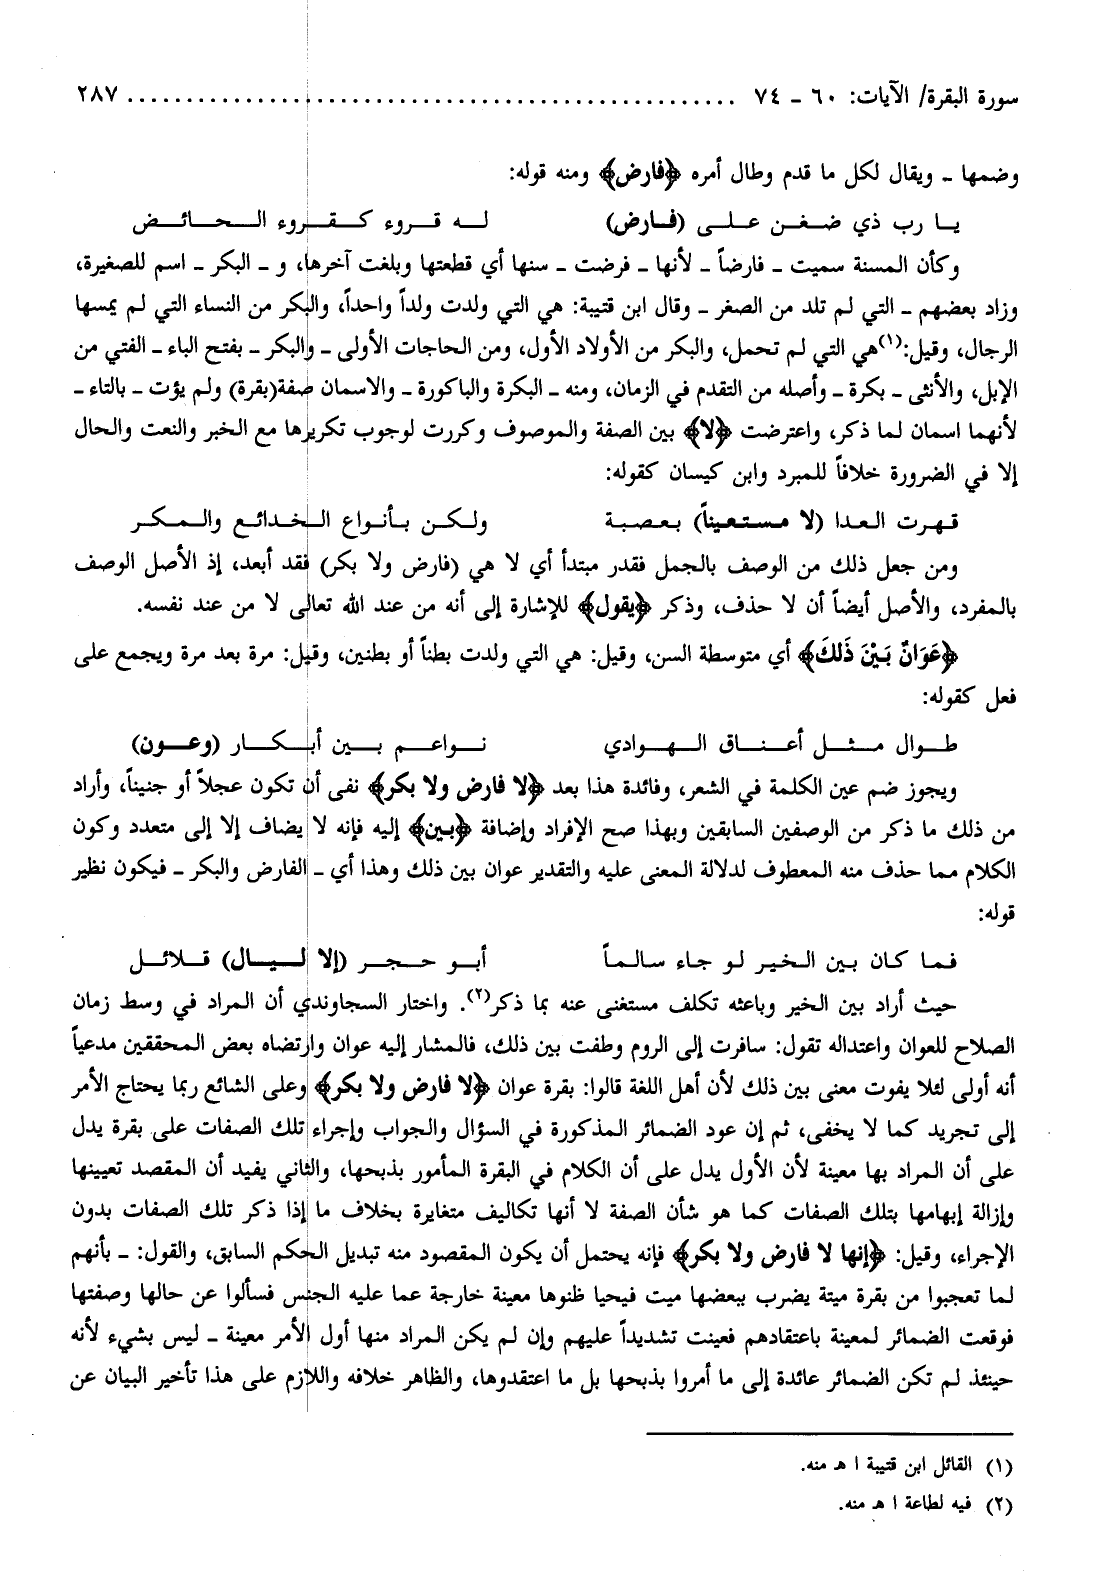 سورة البقرة/ الآيات: ٦٠ ـ ٧٤ ................................................ ٢٨٧
وضمها ـ ويقال لكل ما قدم وطال أمره ﴿فارض﴾ ومنه قوله:
يا رب ذي ضغن على (فارض) له قروء كقروء الحائض
وكأن المسنة سميت ـ فارضاً ـ لأنها ـ فرضت ـ سنها أي قطعتها وبلغت آخرها، و ـ البكر ـ اسم للصغيرة،
وزاد بعضهم ـ التي لم تلد من الصغر ـ وقال ابن قتيبة: هي التي ولدت ولداً واحداً، والبكر من النساء التي لم يمسها
الرجال، وقيل:(١)هي التي لم تحمل، والبكر من الأولاد الأول، ومن الحاجات الأولى ـ والبكر ـ بفتح الباء ـ الفتي من
الإبل، والأنثى ـ بكرة ـ وأصله من التقدم في الزمان، ومنه ـ البكرة والباكورة ـ والاسمان صفة(بقرة) ولم يؤت ـ بالتاء ـ
لأنهما اسمان لما ذكر، واعترضت ﴿لا﴾ بين الصفة والموصوف وكررت لوجوب تكريرها مع الخبر والنعت والحال
إلا في الضرورة خلافاً للمبرد وابن كيسان كقوله:
قهرت العدا (لا مستعيناً) بعصبة ولكن بأنواع الخدائع والمكر
ومن جعل ذلك من الوصف بالجمل فقدر مبتدأ أي لا هي (فارض ولا بكر) فقد أبعد، إذ الأصل الوصف
بالمفرد، والأصل أيضاً أن لا حذف، وذكر ﴿يقول﴾ للإشارة إلى أنه من عند الله تعالى لا من عند نفسه.
﴿عَوَانٌ بَيْنَ ذَلكَ﴾ أي متوسطة السن، وقيل: هي التي ولدت بطناً أو بطنين، وقيل: مرة بعد مرة ويجمع على
فعل كقوله:
طوال مثل أعناق الهوادي نواعم بين أبكار (وعون)
ويجوز ضم عين الكلمة في الشعر، وفائدة هذا بعد ﴿لا فارض ولا بكر﴾ نفى أن تكون عجلاً أو جنيناً، وأراد
من ذلك ما ذكر من الوصفين السابقين وبهذا صح الإفراد وإضافة ﴿بين﴾ إليه فإنه لا يضاف إلا إلى متعدد وكون
الكلام مما حذف منه المعطوف لدلالة المعنى عليه والتقدير عوان بين ذلك وهذا أي ـ الفارض والبكر ـ فيكون نظير
قوله:
فما كان بين الخير لو جاء سالماً أبو حجر (إلا ليال) قلائل
حيث أراد بين الخير وباعثه تكلف مستغنى عنه بما ذكر(٢). واختار السجاوندي أن المراد في وسط زمان
الصلاح للعوان واعتداله تقول: سافرت إلى الروم وطفت بين ذلك، فالمشار إليه عوان وارتضاه بعض المحققين مدعياً
أنه أولى لئلا يفوت معنى بين ذلك لأن أهل اللغة قالوا: بقرة عوان ﴿لا فارض ولا بكر﴾ وعلى الشائع ربما يحتاج الأمر
إلى تجريد كما لا يخفى، ثم إن عود الضمائر المذكورة في السؤال والجواب وإجراء تلك الصفات على بقرة يدل
على أن المراد بها معينة لأن الأول يدل على أن الكلام في البقرة المأمور بذبحها، والثاني يفيد أن المقصد تعيينها
وإزالة إبهامها بتلك الصفات كما هو شأن الصفة لا أنها تكاليف متغايرة بخلاف ما إذا ذكر تلك الصفات بدون
الإجراء، وقيل: ﴿إنها لا فارض ولا بكر﴾ فإنه يحتمل أن يكون المقصود منه تبديل الحكم السابق، والقول: ـ بأنهم
لما تعجبوا من بقرة ميتة يضرب ببعضها ميت فيحيا ظنوها معينة خارجة عما عليه الجنس فسألوا عن حالها وصفتها
فوقعت الضمائر لمعينة باعتقادهم فعينت تشديداً عليهم وإن لم يكن المراد منها أول الأمر معينة ـ ليس بشيء لأنه
حينئذ لم تكن الضمائر عائدة إلى ما أمروا بذبحها بل ما اعتقدوها، والظاهر خلافه واللازم على هذا تأخير البيان عن
(١) القائل ابن قتيبة ا هـ منه.
(٢) فيه لطاعة ا هـ منه.